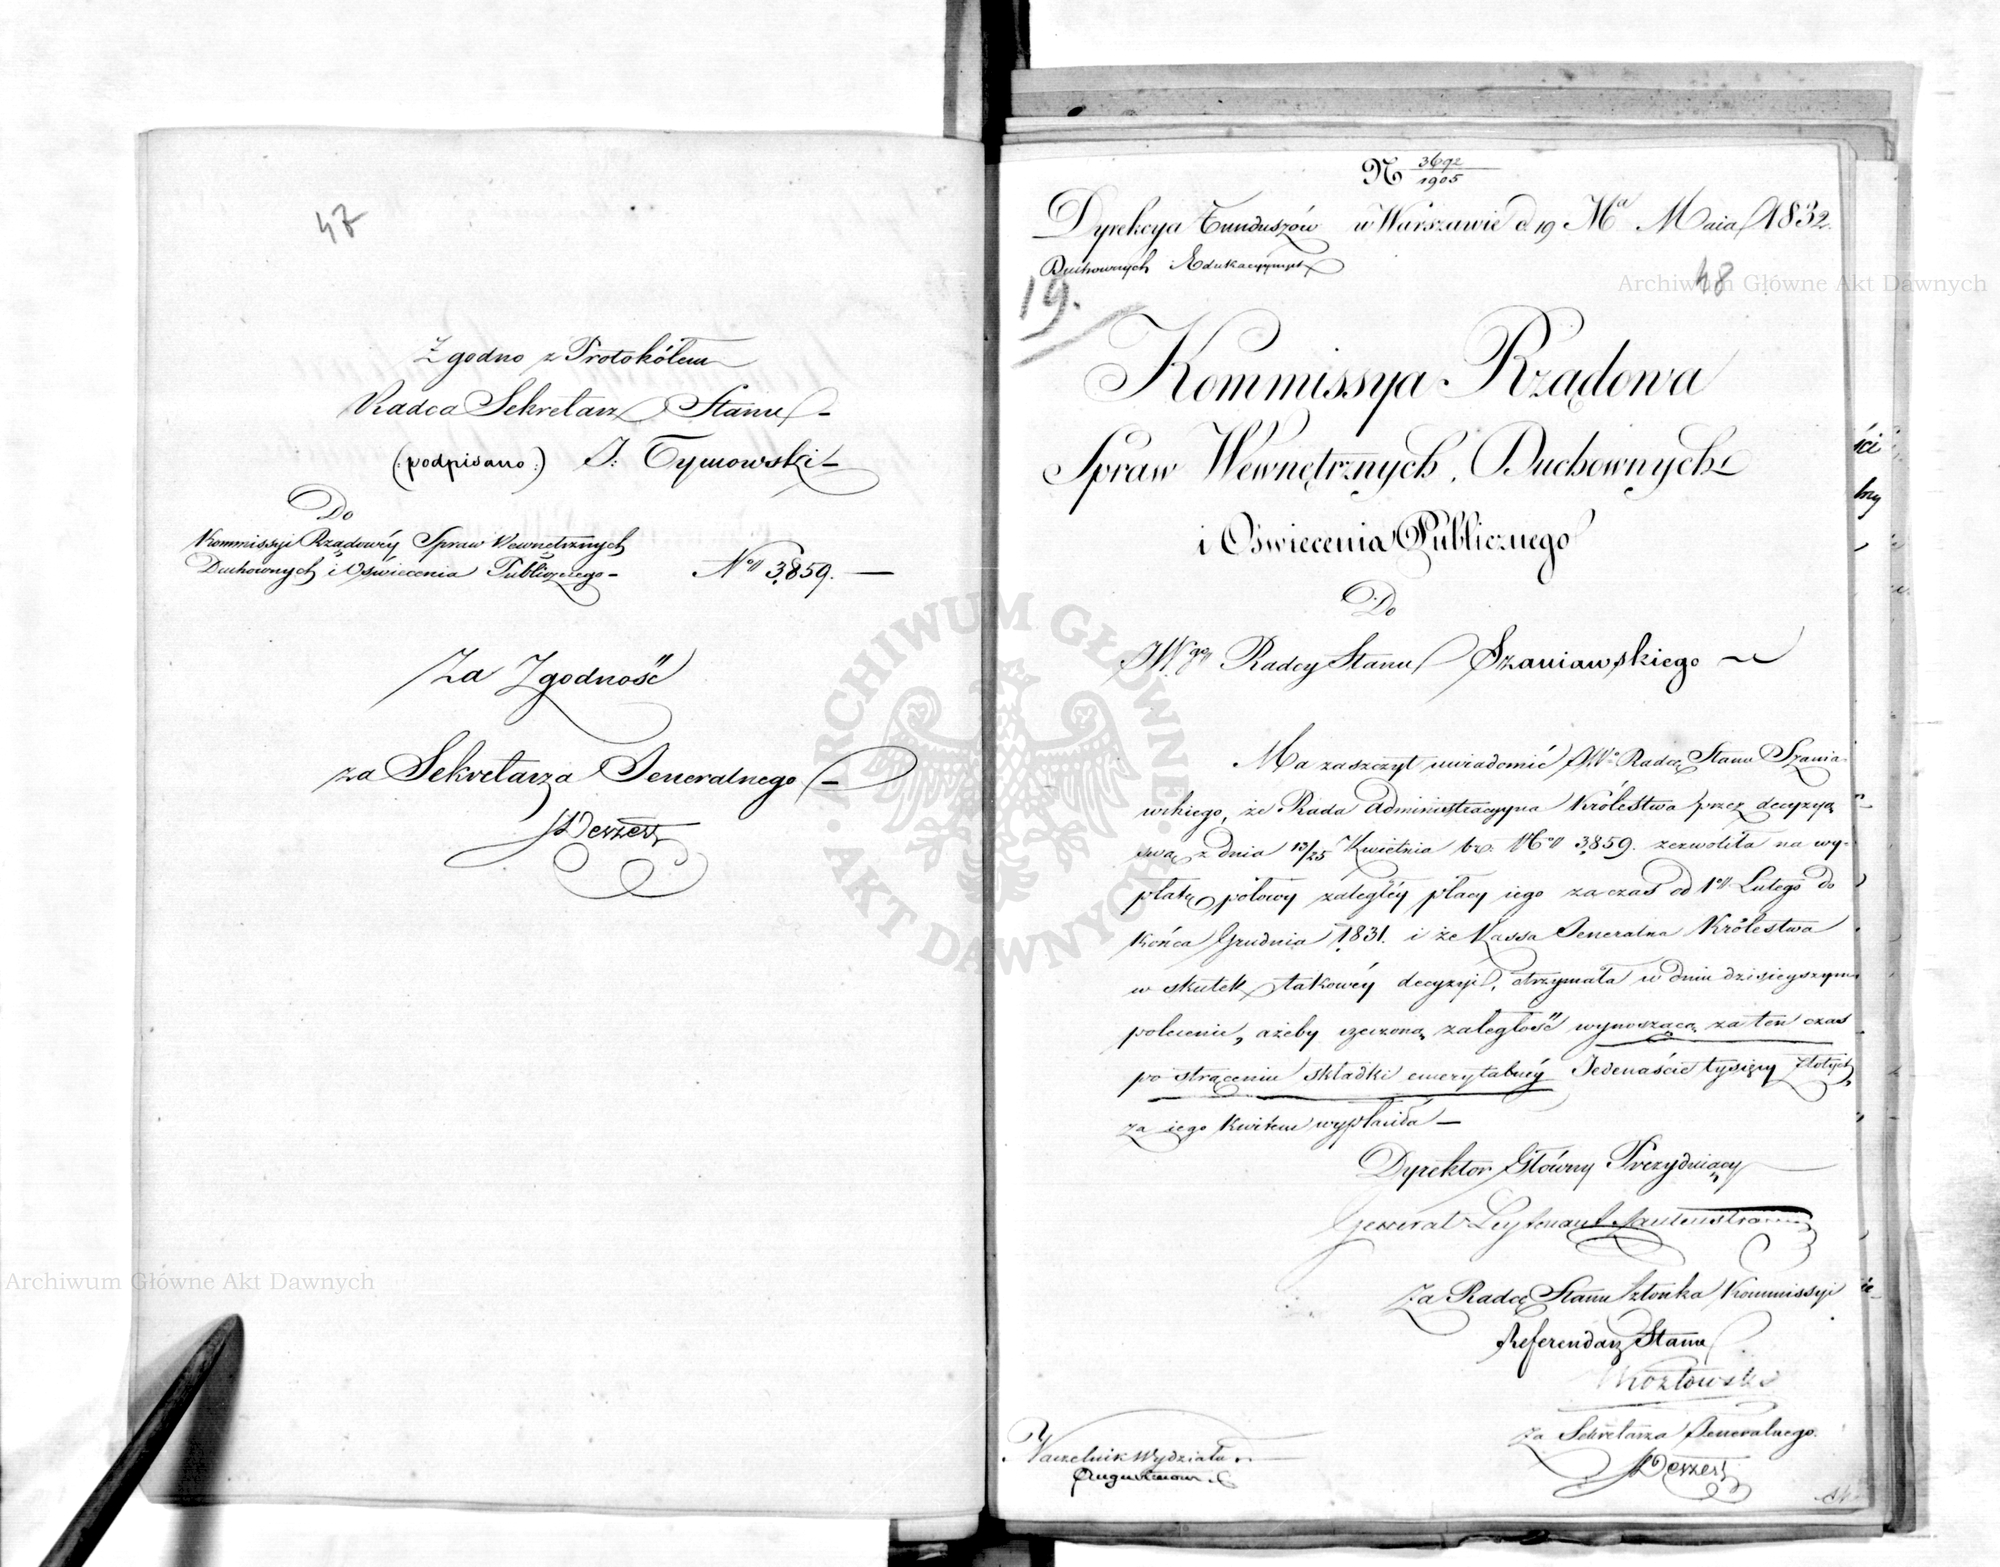 47
Zgodno z Protokółem
Radca Sekretarz Stanu
(:podpisano:) J: Tymowski
Do
Kommissyi Rządowéy Spraw Wewnętrznych
Duchownych i Oświecenia Publicznego – Nº 3,859. —
Za Zgodność
za Sekretarza Jeneralnego
N 3692/1905
Dyrekcya Funduszów w Warszawie d. 19 Ma Maia 1832.
Duchownych i Edukacyynych
48
19.
Kommissya Rządowa
Spraw Wewnętrznych, Duchownych
i Oświecenia Publicznego
Do
JWgo Radcy Stanu Szaniawskiego
Ma zaszczyt uwiadomić JWo Radcę Stanu Szania-
wskiego, że Rada Administracyyna Królestwa przez decyzyą
swą z dnia 13/25 Kwietnia br. Nº 3,859. zezwoliła na wy-
płatę połowy zaległéy płacy iego za czas od 1o Lutego do
końca Grudnia 1831. i że Kassa Jeneralna Królestwa
w skutek takowéy decyzyi, otrzymała w dniu dzisieyszym
polecenie, ażeby rzeczoną zaległość wynoszącą za ten czas
po strąceniu składki emerytalnéy Jedenaście tysięcy Złotych
za iego kwitem wypłaciła —
Dyrektor Główny Prezyduiący
Jenerał Leytenant
Za Radcę Stanu Członka Kommissyi
Referendarz Stanu
Kozłowski
za Sekretarza Jeneralnego
Naczelnik Wydziału
Archiwum Główne Akt Dawnych
Archiwum Główne Akt Dawnych
ARCHIWUM GŁÓWNE AKT DAWNYCH